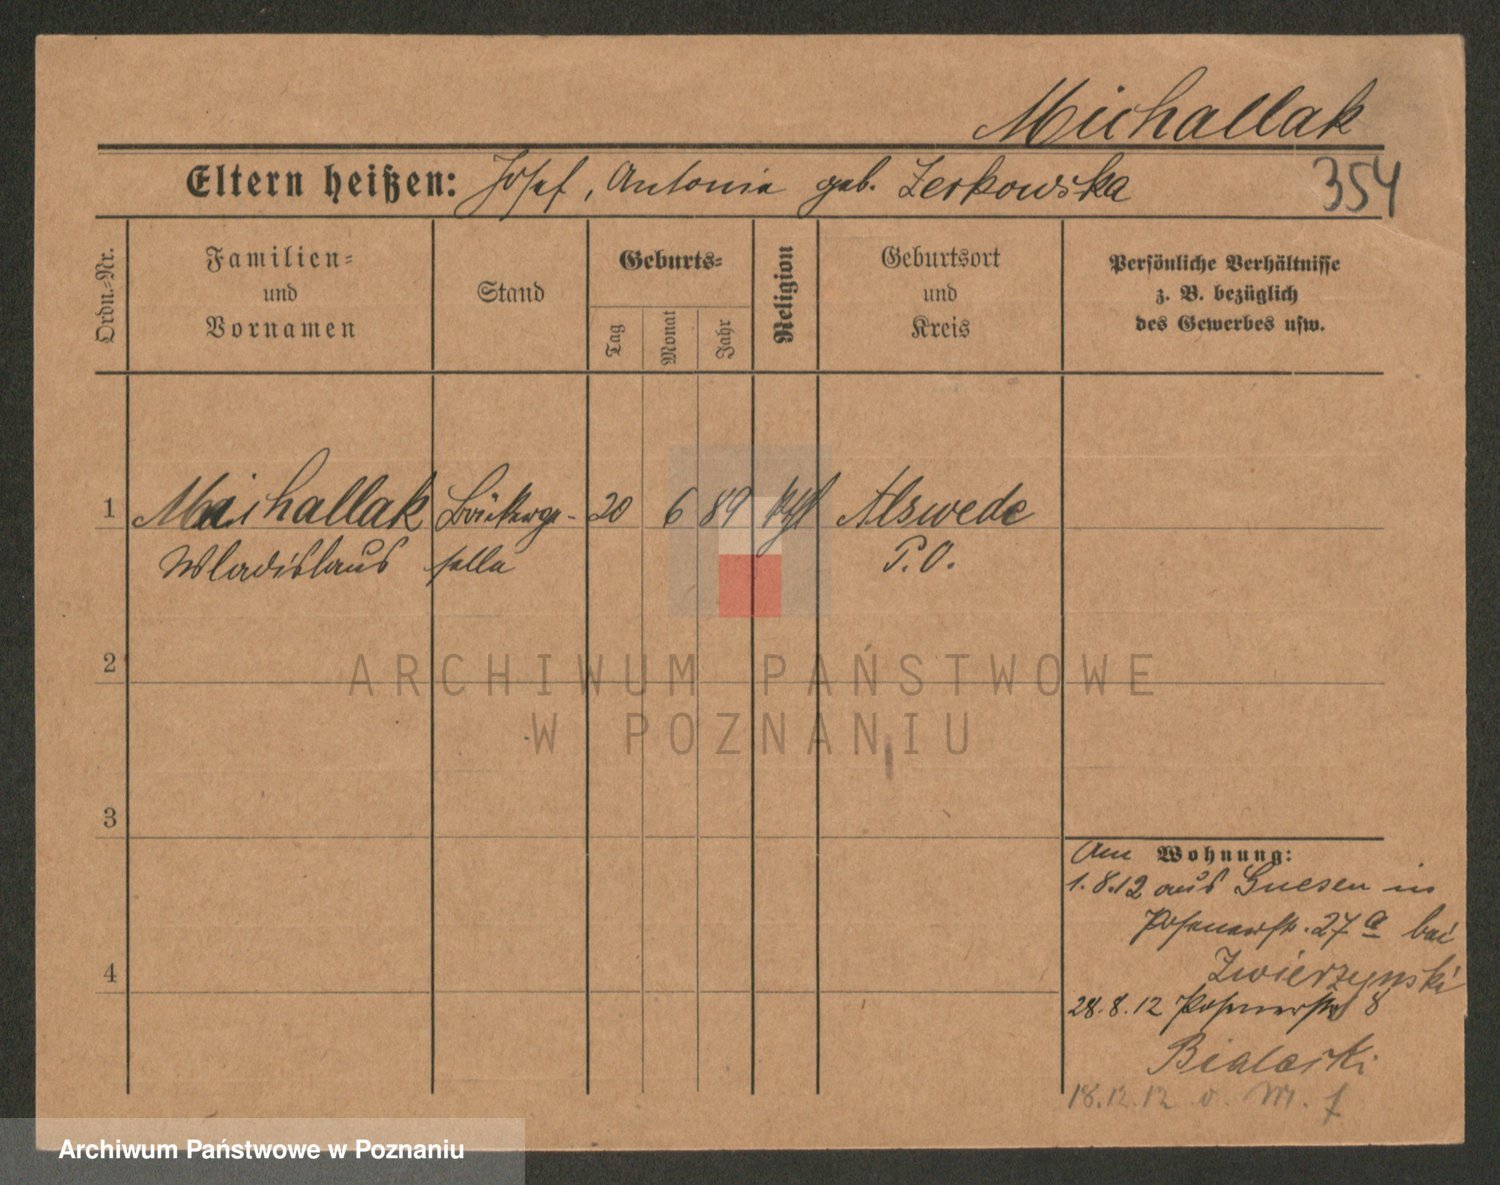 Michallak
Eltern heißen: Josef, Antonia geb. Zerkowska
354
Ordn.-Nr.
Familien-
und
Vornamen
Stand
Geburts-
Tag
Monat
Jahr
Religion
Geburtsort
und
Kreis
Persönliche Verhältnisse
z. B. bezüglich
des Gewerbes usw.
1 Michallak Bäckerge- 20 6 89 kth Alswede
Wladislaus selle P.O.
2
ARCHIWUM PAŃSTWOWE
W POZNANIU
3
Am Wohnung:
1.8.12 aus Gnesen in
Posenerstr. 27 a bei
Zwierzynski
4
28.8.12 Posenerstr 8
Bialaski
18.12.12 v. M. f
Archiwum Państwowe w Poznaniu